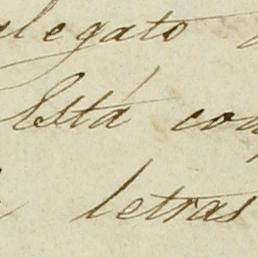 legato
Está con
letras